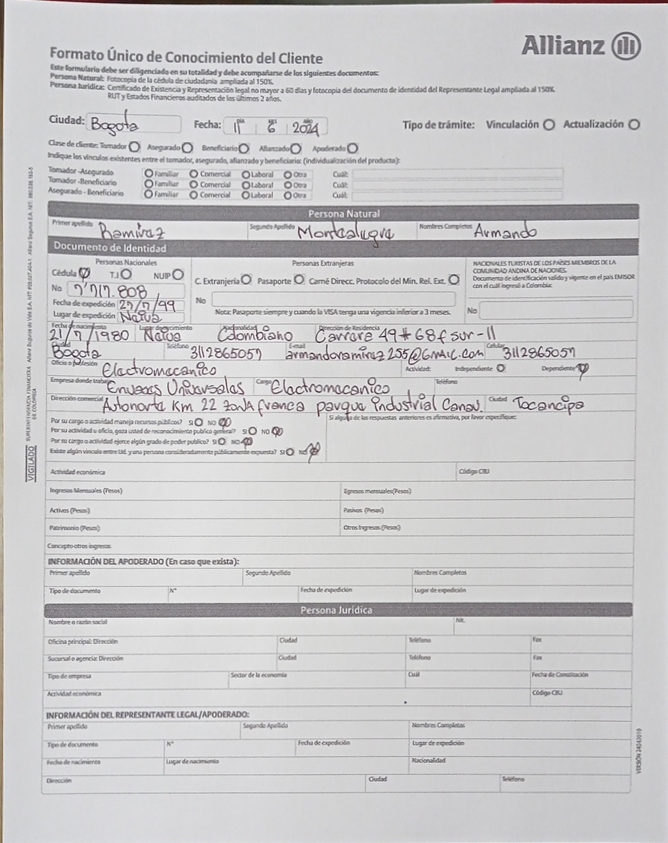 Allianz
Formato Único de Conocimiento del Cliente
Este formulario debe ser diligenciado en su totalidad y debe acompañarse de los siguientes documentos:
Persona Natural: Fotocopia de la cédula de ciudadanía ampliada al 150%.
Persona Jurídica: Certificado de Existencia y Representación legal no mayor a 60 días y fotocopia del documento de identidad del Representante Legal ampliada al 150%
RUT y Estados Financieros auditados de los últimos 2 años.
Ciudad: Bogota Fecha: 11 6 2024 Tipo de trámite: Vinculación Actualización
Clase de cliente: Tomador Asegurado Beneficiario Afianzado Apoderado
Indique los vínculos existentes entre el tomador, asegurado, afianzado y beneficiario: (individualización del producto):
Tomador -Asegurado Familiar Comercial Laboral Otra Cuál:
Tomador -Beneficiario Familiar Comercial Laboral Otra Cuál:
Asegurado - Beneficiario Familiar Comercial Laboral Otra Cuál:
Persona Natural
Primer apellido Ramirez Segundo Apellido Montealegre Nombres Completos Armando
Documento de Identidad
Personas Nacionales Personas Extranjeras NACIONALES TURISTAS DE LOS PAÍSES MIEMBROS DE LA
COMUNIDAD ANDINA DE NACIONES.
Cédula T.I NUIP C. Extranjería Pasaporte Carné Direcc. Protocolo del Min. Rel. Ext. Documento de identificación válido y vigente en el país EMISOR
con el cuál ingresó a Colombia:
No 7'717.808 No
Fecha de expedición 27/7/99
Lugar de expedición Neiva Nota: Pasaporte siempre y cuando la VISA tenga una vigencia inferior a 3 meses. No
Fecha de nacimiento 21/7/1980 Lugar de nacimiento Neiva Nacionalidad Colombiano Dirección de Residencia Carrera 49 # 68f sur-11
Bogota Teléfono 3112865057 E-mail armandoramirez255@gmail.com 3112865057
Oficio o profesión Electromecanico Actividad: Independiente Dependiente
Empresa donde trabaja Envases Universales Cargo Electromecanico Teléfono
Dirección comercial Autonorte Km 22 zona franca parque industrial Ciudad Tocancipa
Por su cargo o actividad maneja recursos públicos? SI NO Si alguna de las respuestas anteriores es afirmativa, por favor especifique:
Por su actividad u oficio, goza usted de reconocimiento publico general? SI NO
Por su cargo o actividad ejerce algún grado de poder publico? SI NO
Existe algún vinculo entre Ud. y una persona considerada públicamente expuesta? SI NO
Actividad económica Código CIIU
Ingresos Mensuales (Pesos) Egresos mensuales(Pesos)
Activos (Pesos) Pasivos (Pesos)
Patrimonio (Pesos) Otros Ingresos (Pesos)
Concepto otros ingresos
INFORMACIÓN DEL APODERADO (En caso que exista):
Primer apellido Segundo Apellido Nombres Completos
Tipo de documento N° Fecha de expedición Lugar de expedición
Persona Jurídica
Nombre o razón social Nit.
Oficina principal: Dirección Ciudad Teléfono Fax
Sucursal o agencia: Dirección Ciudad Teléfono Fax
Tipo de empresa Sector de la economía Cuál Fecha de Constitución
Actividad económica Código CIIU
INFORMACIÓN DEL REPRESENTANTE LEGAL/APODERADO:
Primer apellido Segundo Apellido Nombres Completos
Tipo de documento N° Fecha de expedición Lugar de expedición
Fecha de nacimiento Lugar de nacimiento Nacionalidad
Dirección Ciudad Teléfono
VIGILADO SUPERINTENDENCIA FINANCIERA DE COLOMBIA